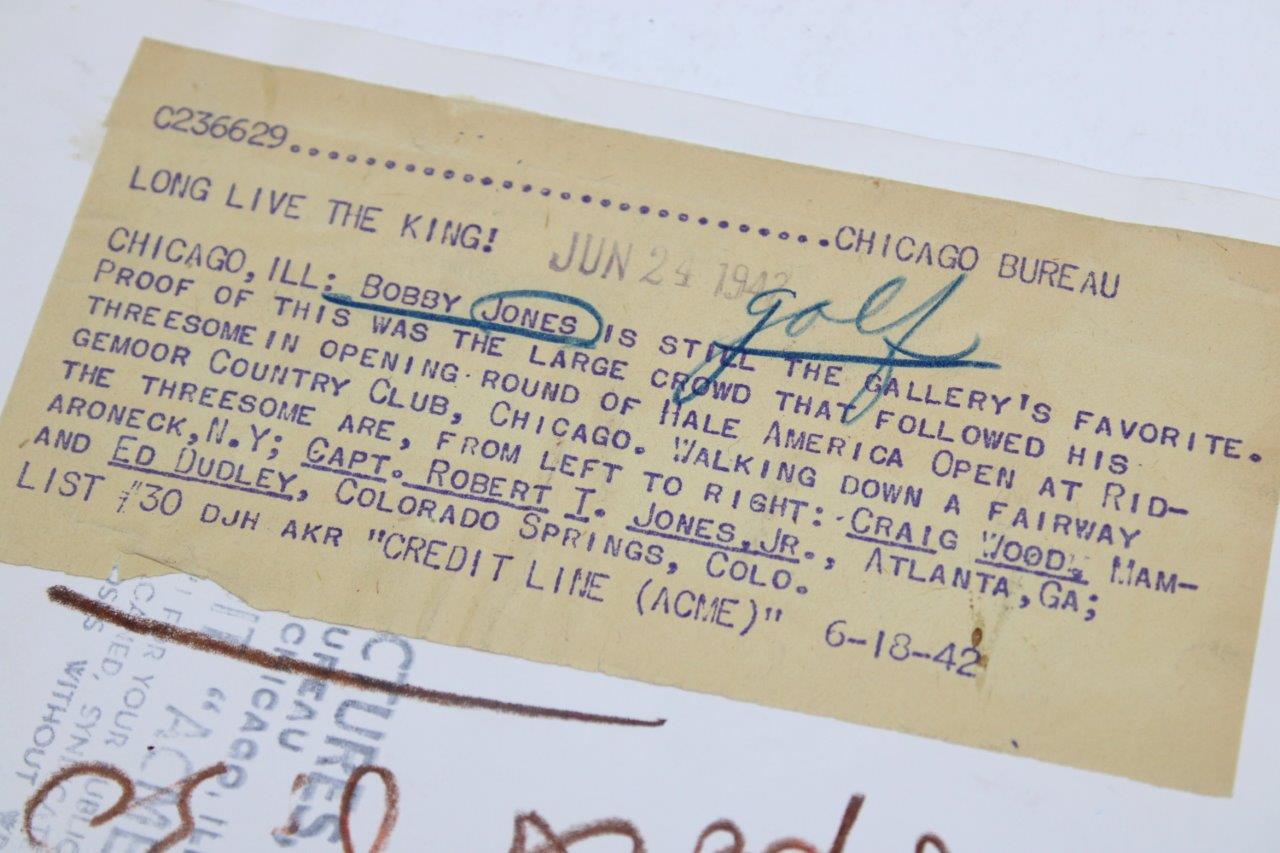 C236629.......................................CHICAGO BUREAU
LONG LIVE THE KING!
JUN 24 1942
golf
CHICAGO, ILL: BOBBY JONES IS STILL THE GALLERY'S FAVORITE.
PROOF OF THIS WAS THE LARGE CROWD THAT FOLLOWED HIS
THREESOME IN OPENING ROUND OF HALE AMERICA OPEN AT RID-
GEMOOR COUNTRY CLUB, CHICAGO. WALKING DOWN A FAIRWAY
THE THREESOME ARE, FROM LEFT TO RIGHT: CRAIG WOOD, MAM-
ARONECK, N.Y; CAPT. ROBERT T. JONES, JR., ATLANTA, GA;
AND ED DUDLEY, COLORADO SPRINGS, COLO.
LIST #30 DJH AKR "CREDIT LINE (ACME)" 6-18-42
CTURES,
UREAU
CHICAGO, ILL
"ACME
FOR YOUR PUBLIC
CATED, SYN
WITHOUT